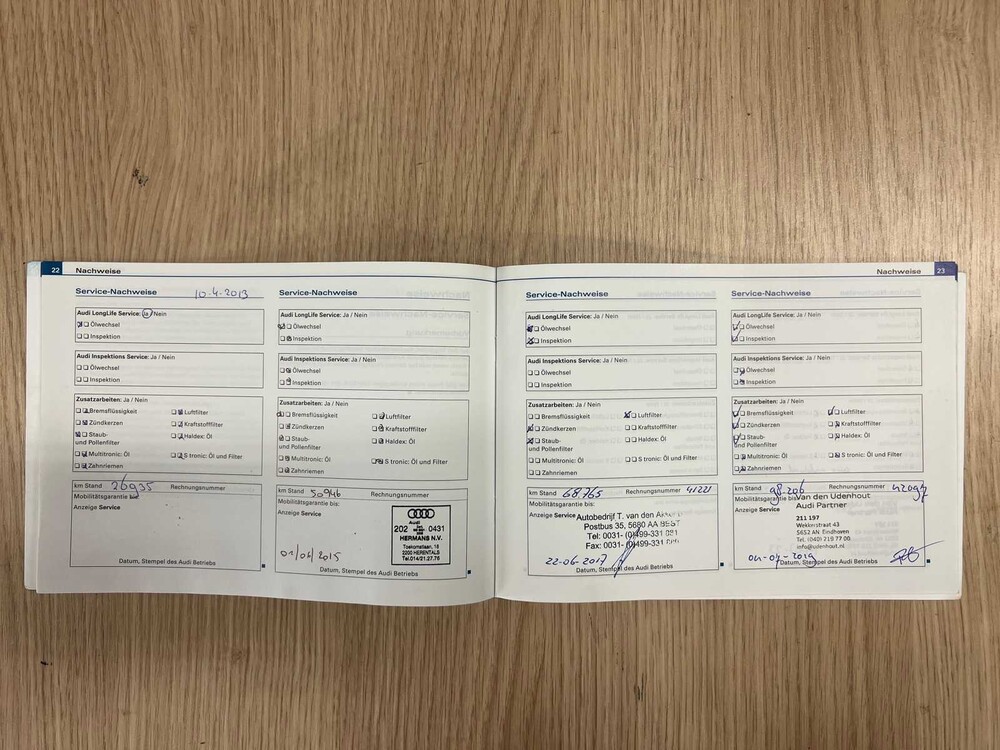 22 Nachweise
Service-Nachweise 10-4-2013
Audi LongLife Service: Ja / Nein
Ölwechsel
Inspektion
Audi Inspektions Service: Ja / Nein
Ölwechsel
Inspektion
Zusatzarbeiten: Ja / Nein
Bremsflüssigkeit Luftfilter
Zündkerzen Kraftstofffilter
Staub- Haldex: Öl
und Pollenfilter
Multitronic: Öl S tronic: Öl und Filter
Zahnriemen
km Stand 26935 Rechnungsnummer
Mobilitätsgarantie bis:
Anzeige Service
Datum, Stempel des Audi Betriebs
Service-Nachweise
Audi LongLife Service: Ja / Nein
Ölwechsel
Inspektion
Audi Inspektions Service: Ja / Nein
Ölwechsel
Inspektion
Zusatzarbeiten: Ja / Nein
Bremsflüssigkeit Luftfilter
Zündkerzen Kraftstofffilter
Staub- Haldex: Öl
und Pollenfilter
Multitronic: Öl S tronic: Öl und Filter
Zahnriemen
km Stand 50946 Rechnungsnummer
Mobilitätsgarantie bis:
Anzeige Service
Audi
202 0431
HERMANS N.V.
Toekomstlaan, 16
2200 HERENTALS
Tel.014/21.27.76
01/06/2015
Datum, Stempel des Audi Betriebs
Nachweise 23
Service-Nachweise
Audi LongLife Service: Ja / Nein
Ölwechsel
Inspektion
Audi Inspektions Service: Ja / Nein
Ölwechsel
Inspektion
Zusatzarbeiten: Ja / Nein
Bremsflüssigkeit Luftfilter
Zündkerzen Kraftstofffilter
Staub- Haldex: Öl
und Pollenfilter
Multitronic: Öl S tronic: Öl und Filter
Zahnriemen
km Stand 68765 Rechnungsnummer 41221
Mobilitätsgarantie bis:
Anzeige Service Autobedrijf T. van den
Postbus 35, 5680 AA BEST
Tel: 0031- (0)499-331
Fax: 0031- (0)499-331
22-06-2017
Datum, Stempel des Audi Betriebs
Service-Nachweise
Audi LongLife Service: Ja / Nein
Ölwechsel
Inspektion
Audi Inspektions Service: Ja / Nein
Ölwechsel
Inspektion
Zusatzarbeiten: Ja / Nein
Bremsflüssigkeit Luftfilter
Zündkerzen Kraftstofffilter
Staub- Haldex: Öl
und Pollenfilter
Multitronic: Öl S tronic: Öl und Filter
Zahnriemen
km Stand 98.206 Rechnungsnummer
Mobilitätsgarantie bis: Van den Udenhout
Audi Partner
Anzeige Service
211 197
Wekkerstraat 43
5652 AN Eindhoven
Tel. (040) 219 77 00
info@udenhout.nl
Datum, Stempel des Audi Betriebs